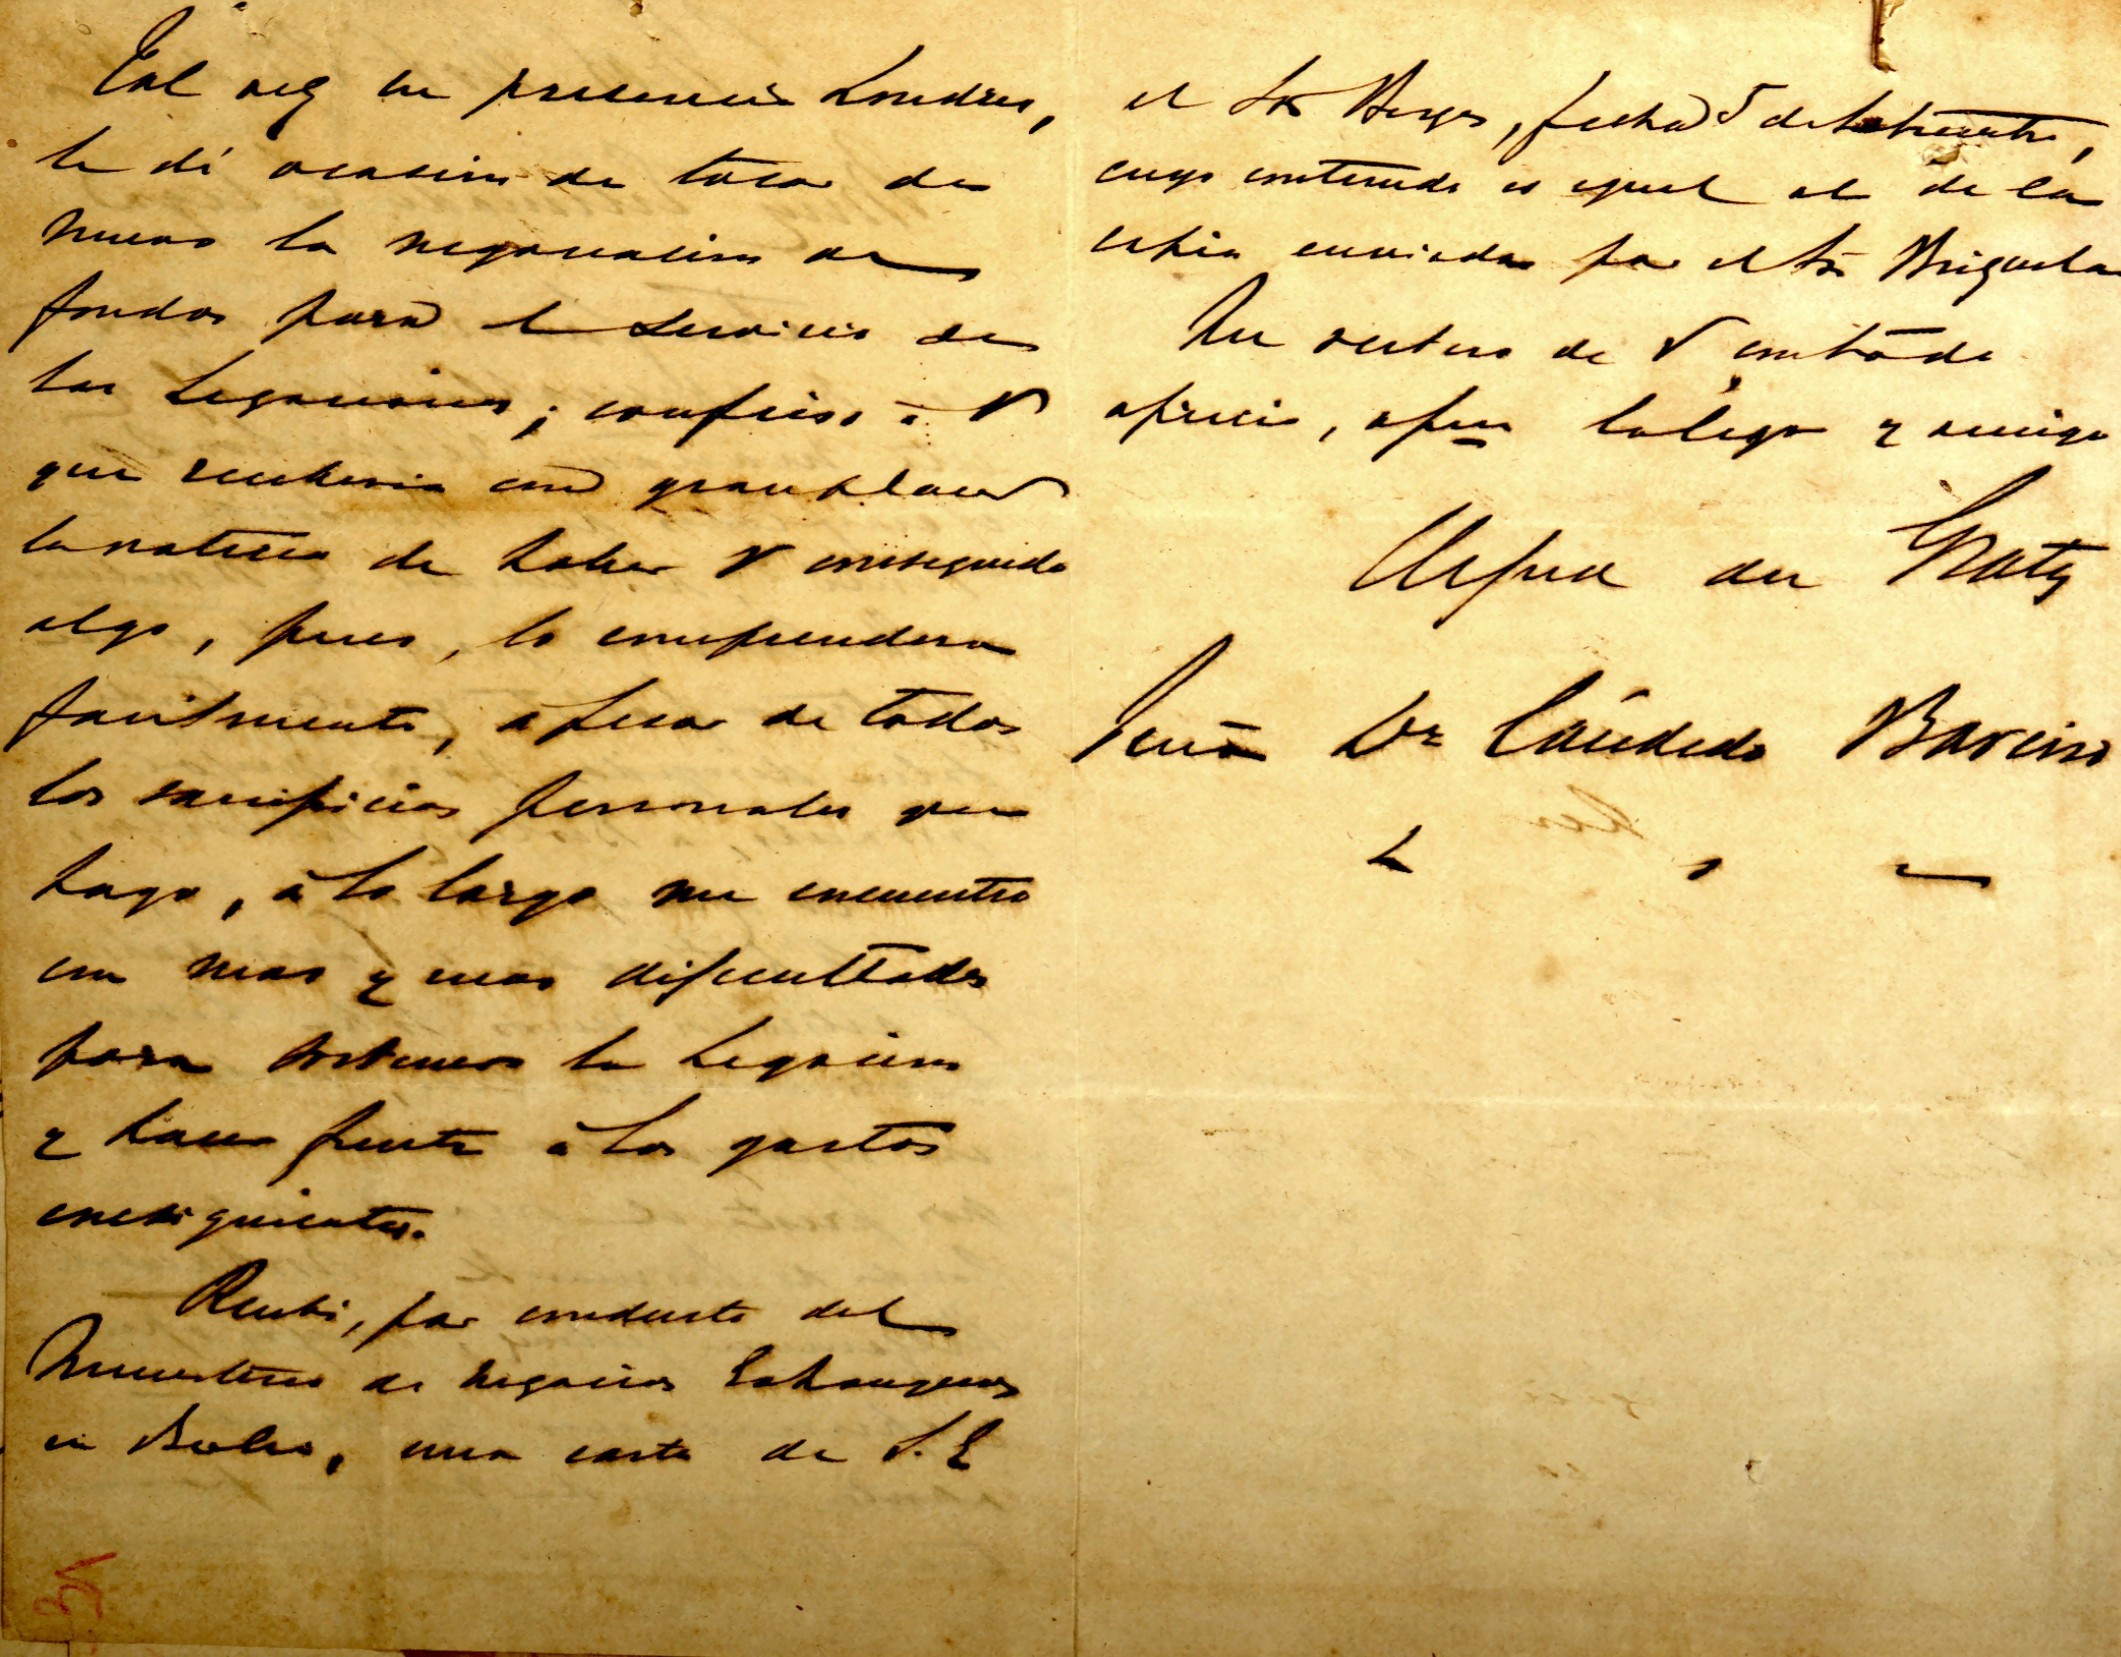 Tal vez su presencia Londres,
le dí ocasion de tocar de
nuevo la negociacion de
fondos para el servicio de
las Legaciones; confieso á V
que recibiria con gran placer
la noticia de haber V conseguido
algo, pues, lo comprendera
facilmente, á pesar de todos
los sacrificios personales que
hago, á lo largo me encuentro
con mas y mas dificultades
para sostener la Legacion
y hacer frente á los gastos
consiguientes.
Recibi, por conducto del
Ministerio de Negocios Estrangeros
en Berlin, una carta de S.E
el Sor Berges, fecha 5 de Setiembre,
cuyo contenido es igual al de la
copia enviada por el Sor Brizuela
Me reitero de V con toda
aprecio, afmo Colega y amigo
Alfred du Graty
Señor Dr Cándido Bareiro